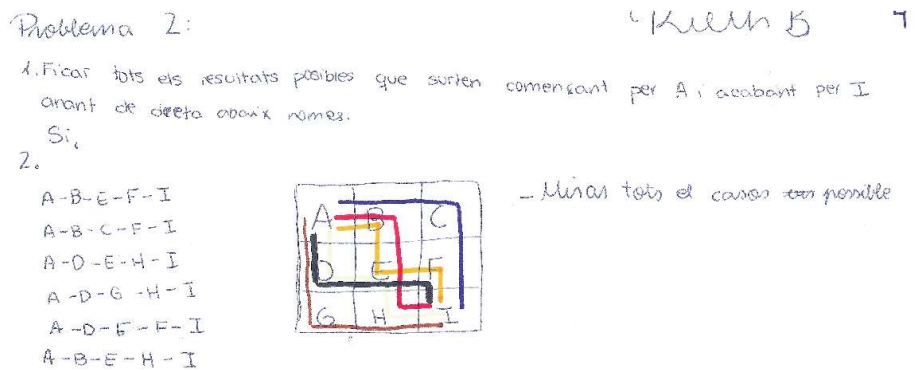 Problema 2:
7
1. Ficar tots els resultats posibles que surten començant per A i acabant per I
anant de dreeta abaix nomes.
Si,
2.
A-B-E-F-I
A-B-C-F-I
A-D-E-H-I
A-D-G-H-I
A-D-E-F-I
A-B-E-H-I
A B C
D E F
G H I
- Miras tots el casos possible